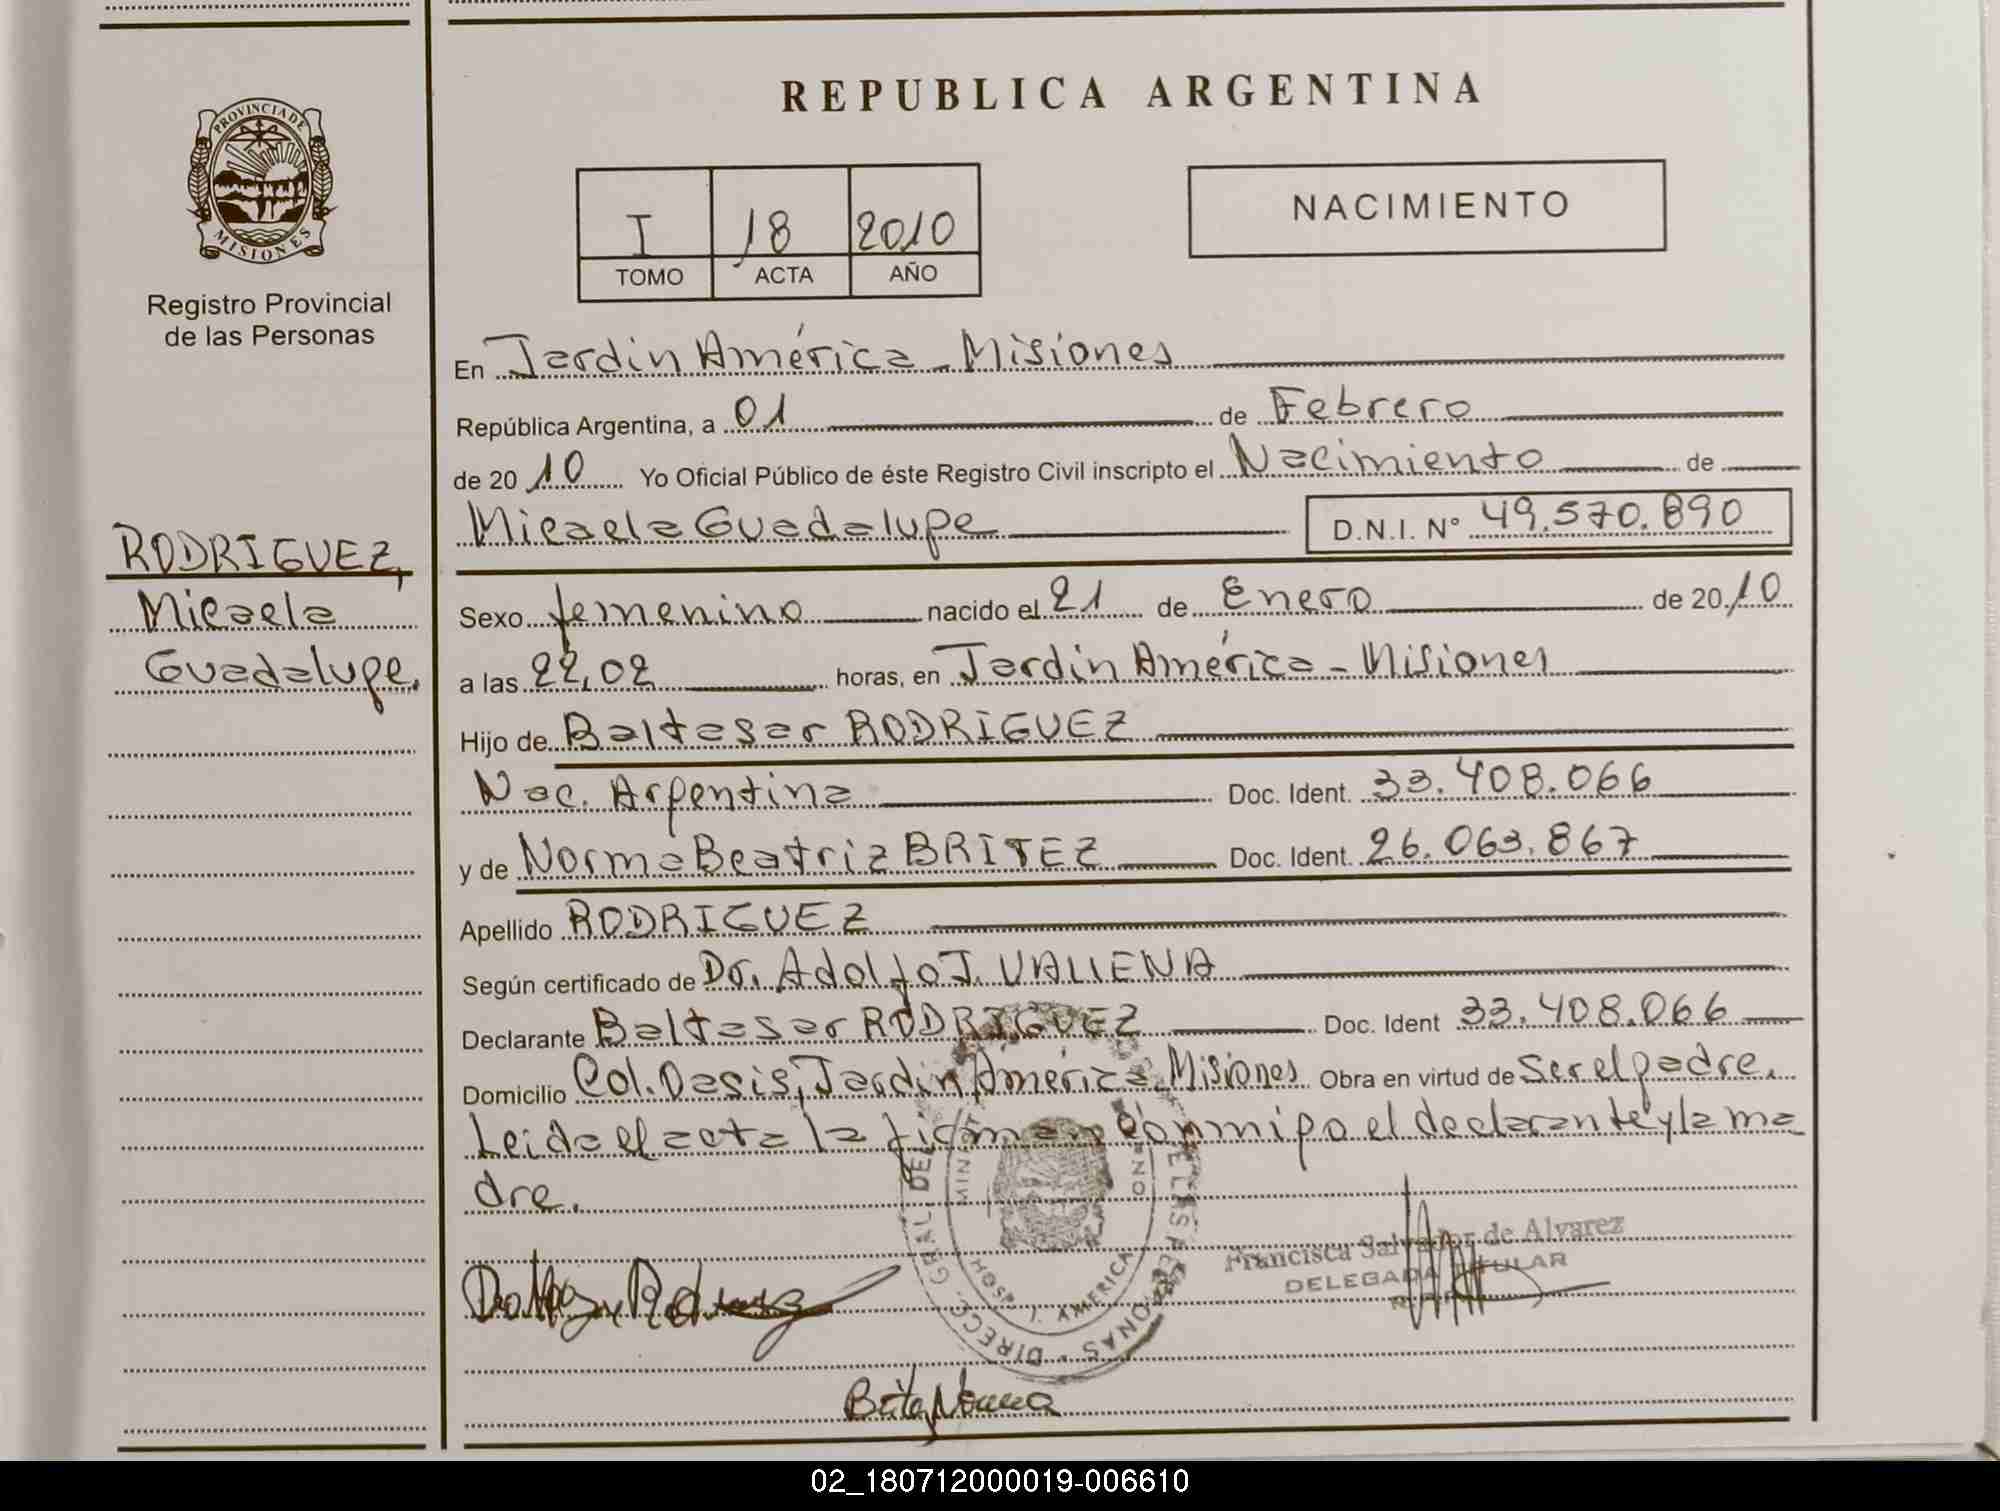 REPUBLICA ARGENTINA
PROVINCIA DE
MISIONES
Registro Provincial
de las Personas
I 18 2010
TOMO ACTA AÑO
NACIMIENTO
En Jardín América - Misiones
República Argentina, a 01 de Febrero
de 20 10 Yo Oficial Público de éste Registro Civil inscripto el Nacimiento de
Micaela Guadalupe D.N.I. N° 49.570.890
RODRIGUEZ,
Micaela
Guadalupe.
Sexo femenino nacido el 21 de Enero de 20 10
a las 22,02 horas, en Jardín América - Misiones
Hijo de Baltasar RODRIGUEZ
Nac. Argentina Doc. Ident. 33.408.066
y de Norma Beatriz BRITEZ Doc. Ident. 26.063.867
Apellido RODRIGUEZ
Según certificado de Dr. Adolfo J. VALIENA
Declarante Baltasar RODRIGUEZ Doc. Ident 33.408.066
Domicilio Col. Oasis, Jardín América - Misiones Obra en virtud de Ser el padre.
Leida el acta la firman conmigo el declarante y la ma
dre.
DIRECC. GRAL. DEL
DE LAS PERSONAS
HOSP. J. AMERICA
Francisca Salvador de Alvarez
DELEGADA TITULAR
Britez Norma
02_180712000019-006610